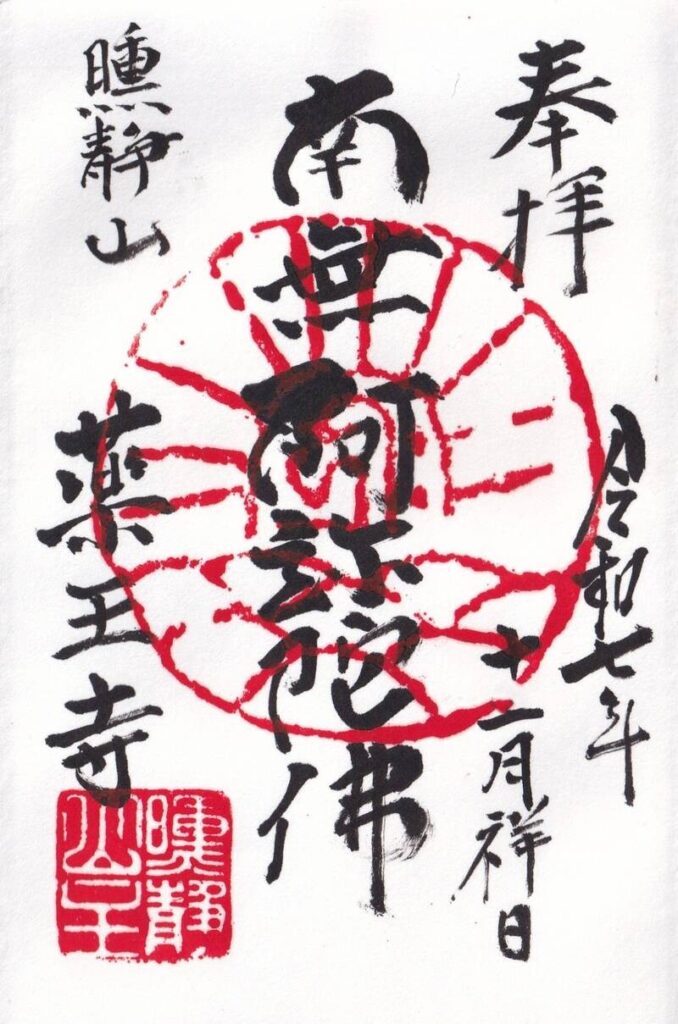 奉拝
令和七年
十一月祥日
南無阿弥陀佛
曛静山
薬王寺
曛静